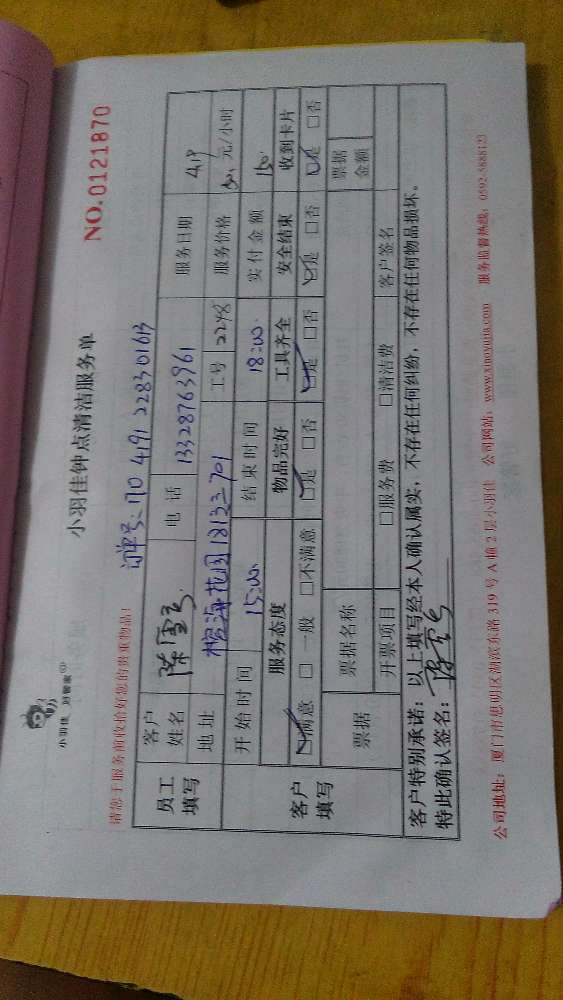 小羽佳 好管家
小羽佳钟点清洁服务单
NO.0121870
请您于服务前收拾好您的贵重物品!
订单号:170 4191 228301613
员工填写
客户姓名 陈雪 电话 13328763961 服务日期 4.19
地址 花园 701 工号 2248 服务价格 50. 元/小时
客户填写
开始时间 15:00 结束时间 18:00. 实付金额 150.
服务态度 物品完好 工具齐全 安全结束 收到卡片
☑满意 □一般 □不满意 ☑是 □否 ☑是 □否 ☑是 □否 ☑是 □否
票据 票据名称 票据金额
开票项目 □服务费 □清洁费 客户签名
客户特别承诺:以上填写经本人确认属实,不存在任何纠纷,不存在任何物品损坏。
特此确认签名:
公司地址:厦门市思明区湖滨东路 319 号 A 幢 2 层小羽佳 公司网站:www.xiaoyujia.com 服务监督热线:0592-5888123